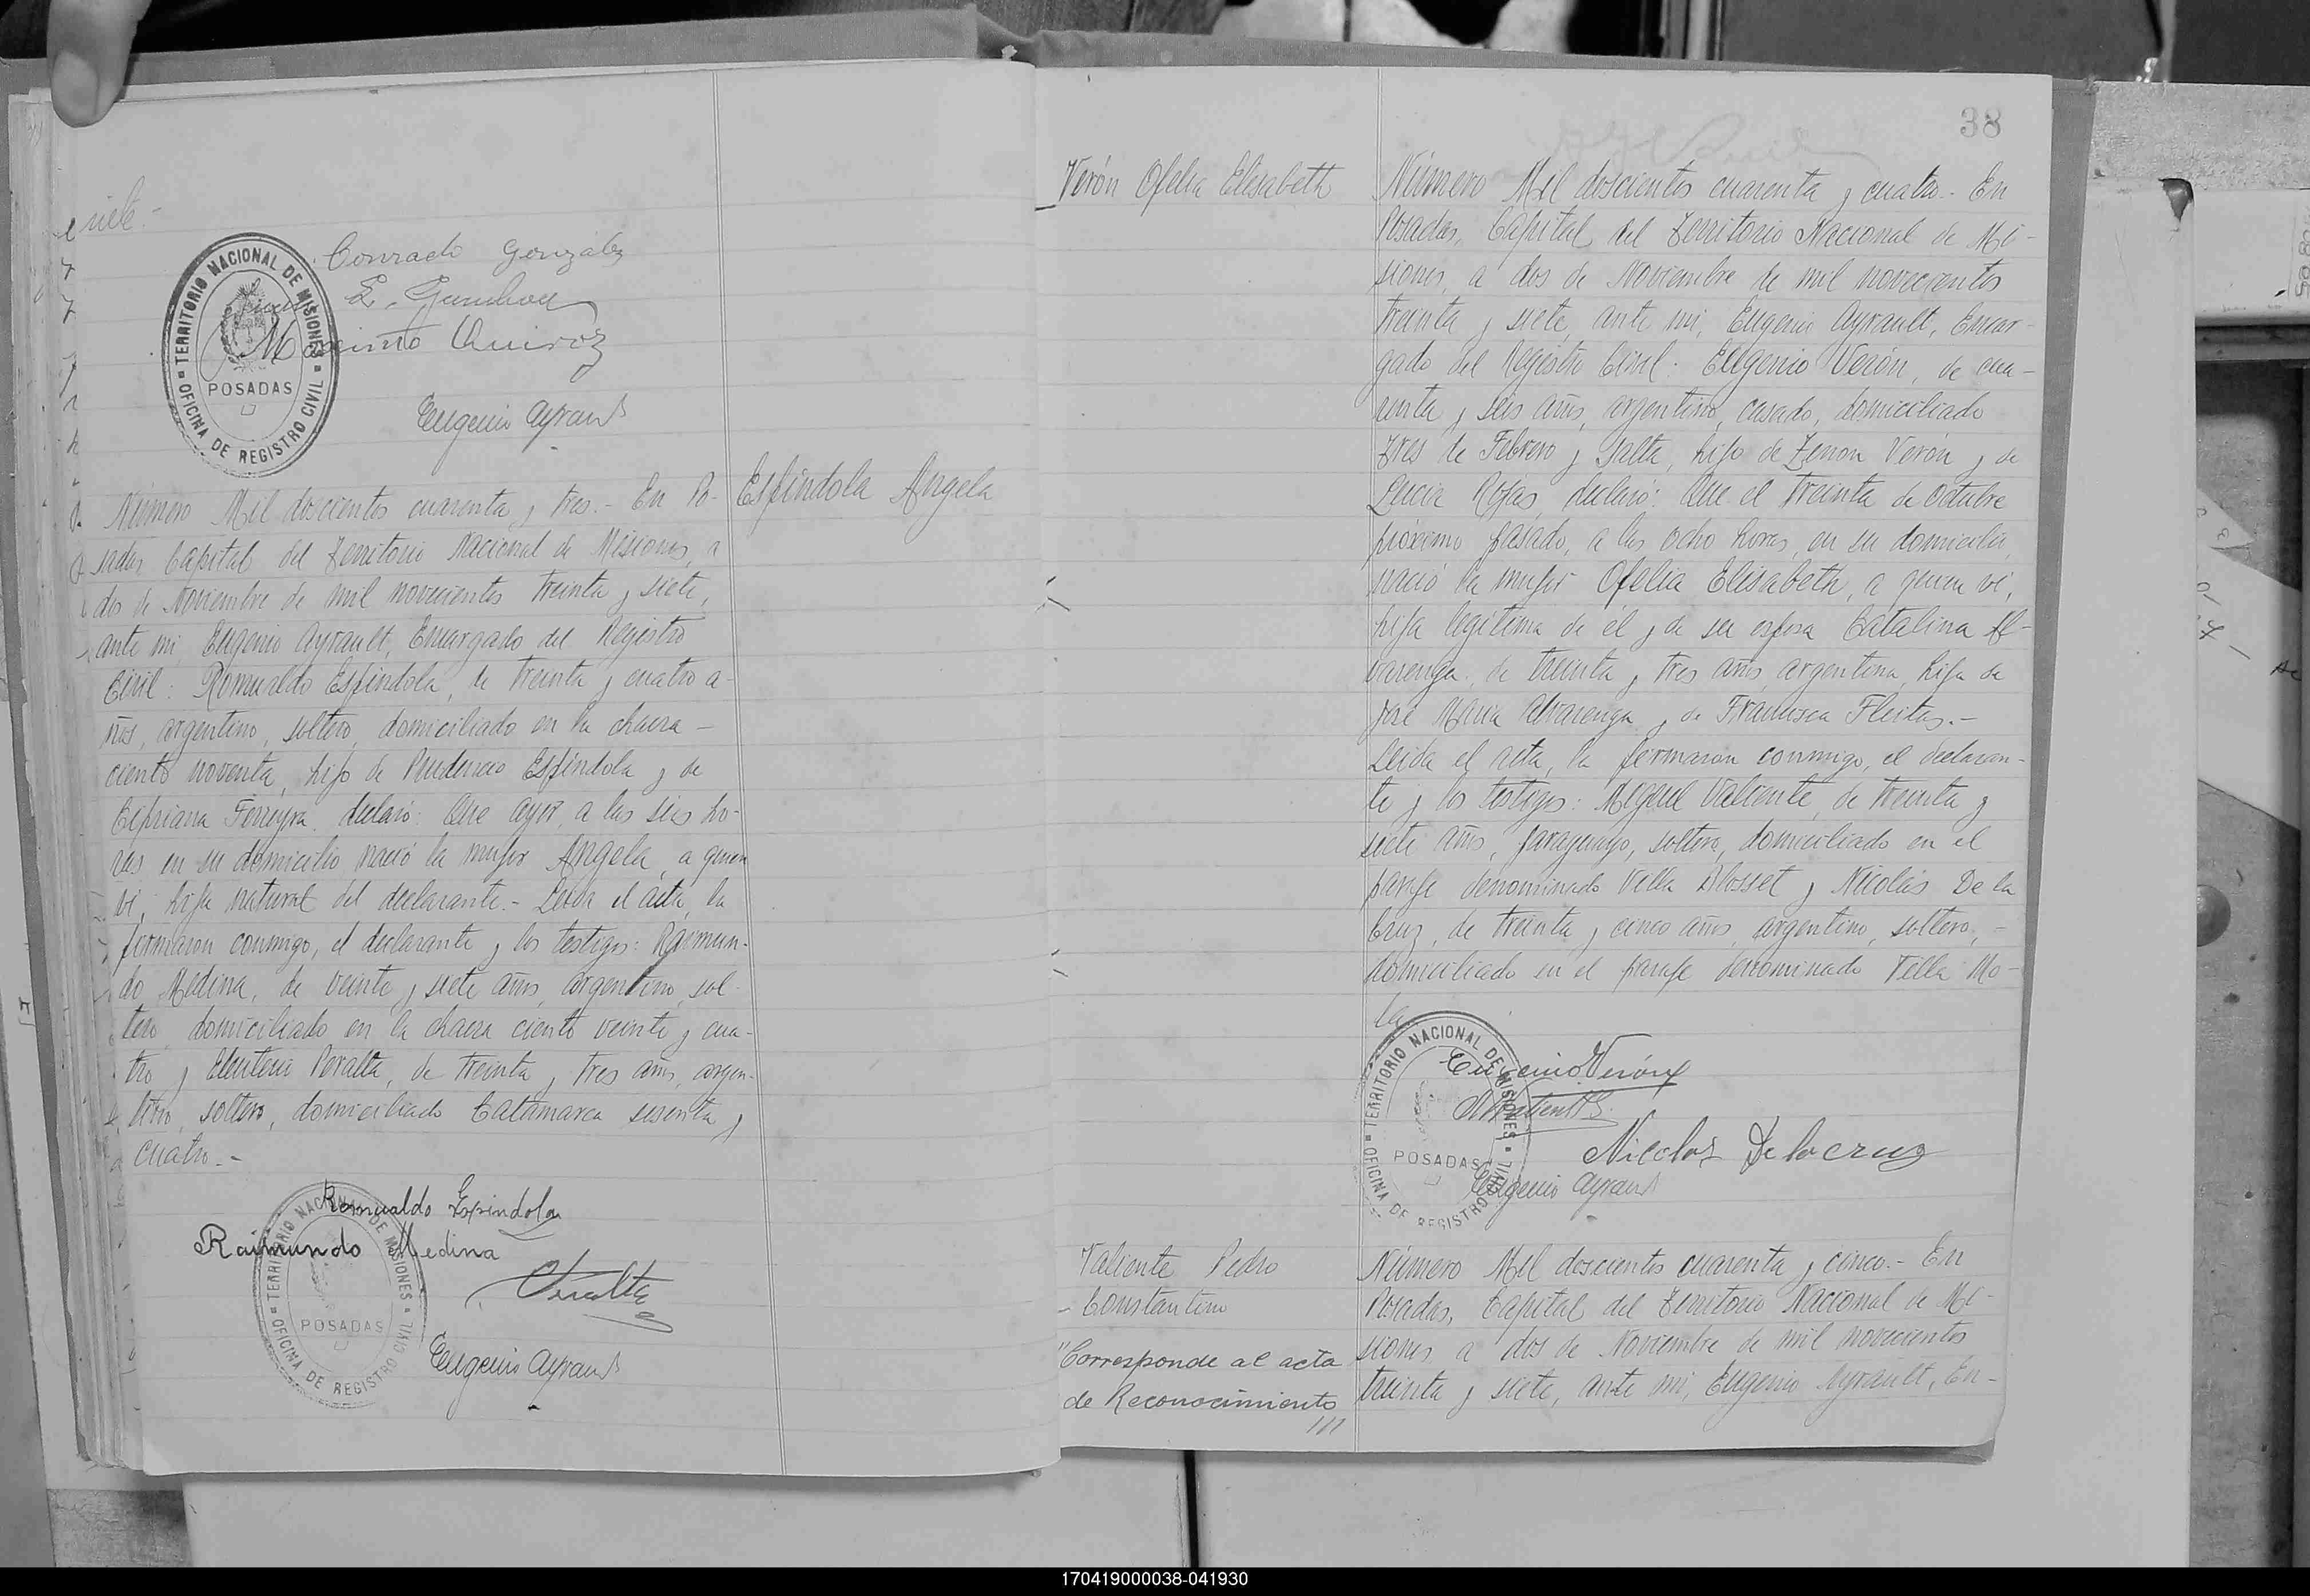 siete.-
Conrado Gonzalez
E. Gamboa
Maximo Quiroz
TERRITORIO NACIONAL DE MISIONES
POSADAS
OFICINA DE REGISTRO CIVIL
Eugenio Ayrault
Espíndola Angela
Número Mil doscientos cuarenta y tres.- En Po-
sadas Capital del Territorio Nacional de Misiones, a
dos de Noviembre de mil novecientos treinta y siete,
ante mi, Eugenio Ayrault, Encargado del Registro
Civil: Romualdo Espíndola, de treinta y cuatro a-
ños, argentino, soltero, domiciliado en la chacra -
ciento noventa, hijo de Prudencio Espíndola y de
Cipriana Ferreyra, declaró: Que ayer, a las seis ho-
ras en su domicilio nació la mujer Angela, a quien
vi, hija natural del declarante.- Leida el acta, la
firmaron conmigo, el declarante y los testigos: Raimun-
do Medina, de veinte y siete años, argentino, sol-
tero, domiciliado en la chacra ciento veinte y cua-
tro y Eleuterio Peralta, de treinta y tres años, argen-
tino, soltero, domiciliado Catamarca sesenta y
cuatro.-
Romualdo Espindola
Raimundo Medina
Peralta
TERRITORIO NACIONAL DE MISIONES
POSADAS
OFICINA DE REGISTRO CIVIL
Eugenio Ayrault
38
Verón Ofelia Elisabeth
Número Mil doscientos cuarenta y cuatro.- En
Posadas, Capital del Territorio Nacional de Mi-
siones, a dos de Noviembre de mil novecientos
treinta y siete, ante mi, Eugenio Ayrault, Encar-
gado del Registro Civil: Eugenio Verón, de cua-
renta y seis años, argentino, casado, domiciliado
Tres de Febrero y Salta, hijo de Zenon Verón y de
Lucia Rojas, declaró: Que el treinta de Octubre
próximo pasado, a las ocho horas, en su domicilio,
nació la mujer Ofelia Elisabeth, a quien vi,
hija legítima de él y de su esposa Catalina Al-
varenga, de treinta y tres años, argentina, hija de
José Maria Alvarenga y de Francisca Fleitas.-
Leida el acta, la firmaron conmigo, el declaran-
te y los testigos: Miguel Valiente, de treinta y
siete años, paraguayo, soltero, domiciliado en el
paraje denominado Villa Blosset y Nicolás De la
Cruz, de treinta y cinco años, argentino, soltero, -
domiciliado en el paraje denominado Villa Mo-
la
Eugenio Verón
Nicolas De la cruz
TERRITORIO NACIONAL DE MISIONES
POSADAS
OFICINA DE REGISTRO CIVIL
Eugenio Ayrault
Valiente Pedro
- Constantino
"Corresponde al acta
de Reconocimiento
///
Número Mil doscientos cuarenta y cinco.- En
Posadas, Capital del Territorio Nacional de Mi-
siones, a dos de Noviembre de mil novecientos
treinta y siete, ante mi, Eugenio Ayrault, En-
170419000038-041930